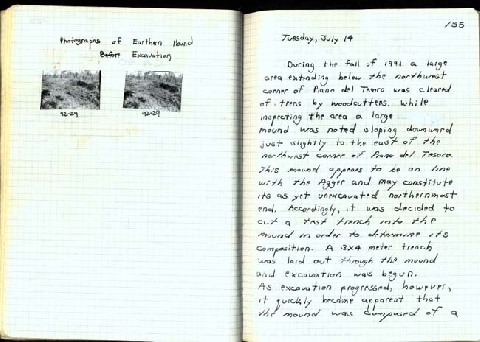 Photographs of Earthen Mound
Before Excavation
92-29
92-29
155
Tuesday, July 14
During the fall of 1991 a large
area extending below the northwest
corner of Piano del Tesoro was cleared
of trees by woodcutters. While
inspecting the area a large
mound was noted sloping downward
just slightly to the east of the
northwest corner of Piano del Tesoro.
This mound appears to be on line
with the Agger and may constitute
its as yet unexcavated northernmost
end. Accordingly, it was decided to
cut a test trench into the
mound in order to determine its
composition. A 3x4 meter trench
was laid out through the mound
and excavation was begun.
As excavation progressed, however,
it quickly became apparent that
the mound was composed of a